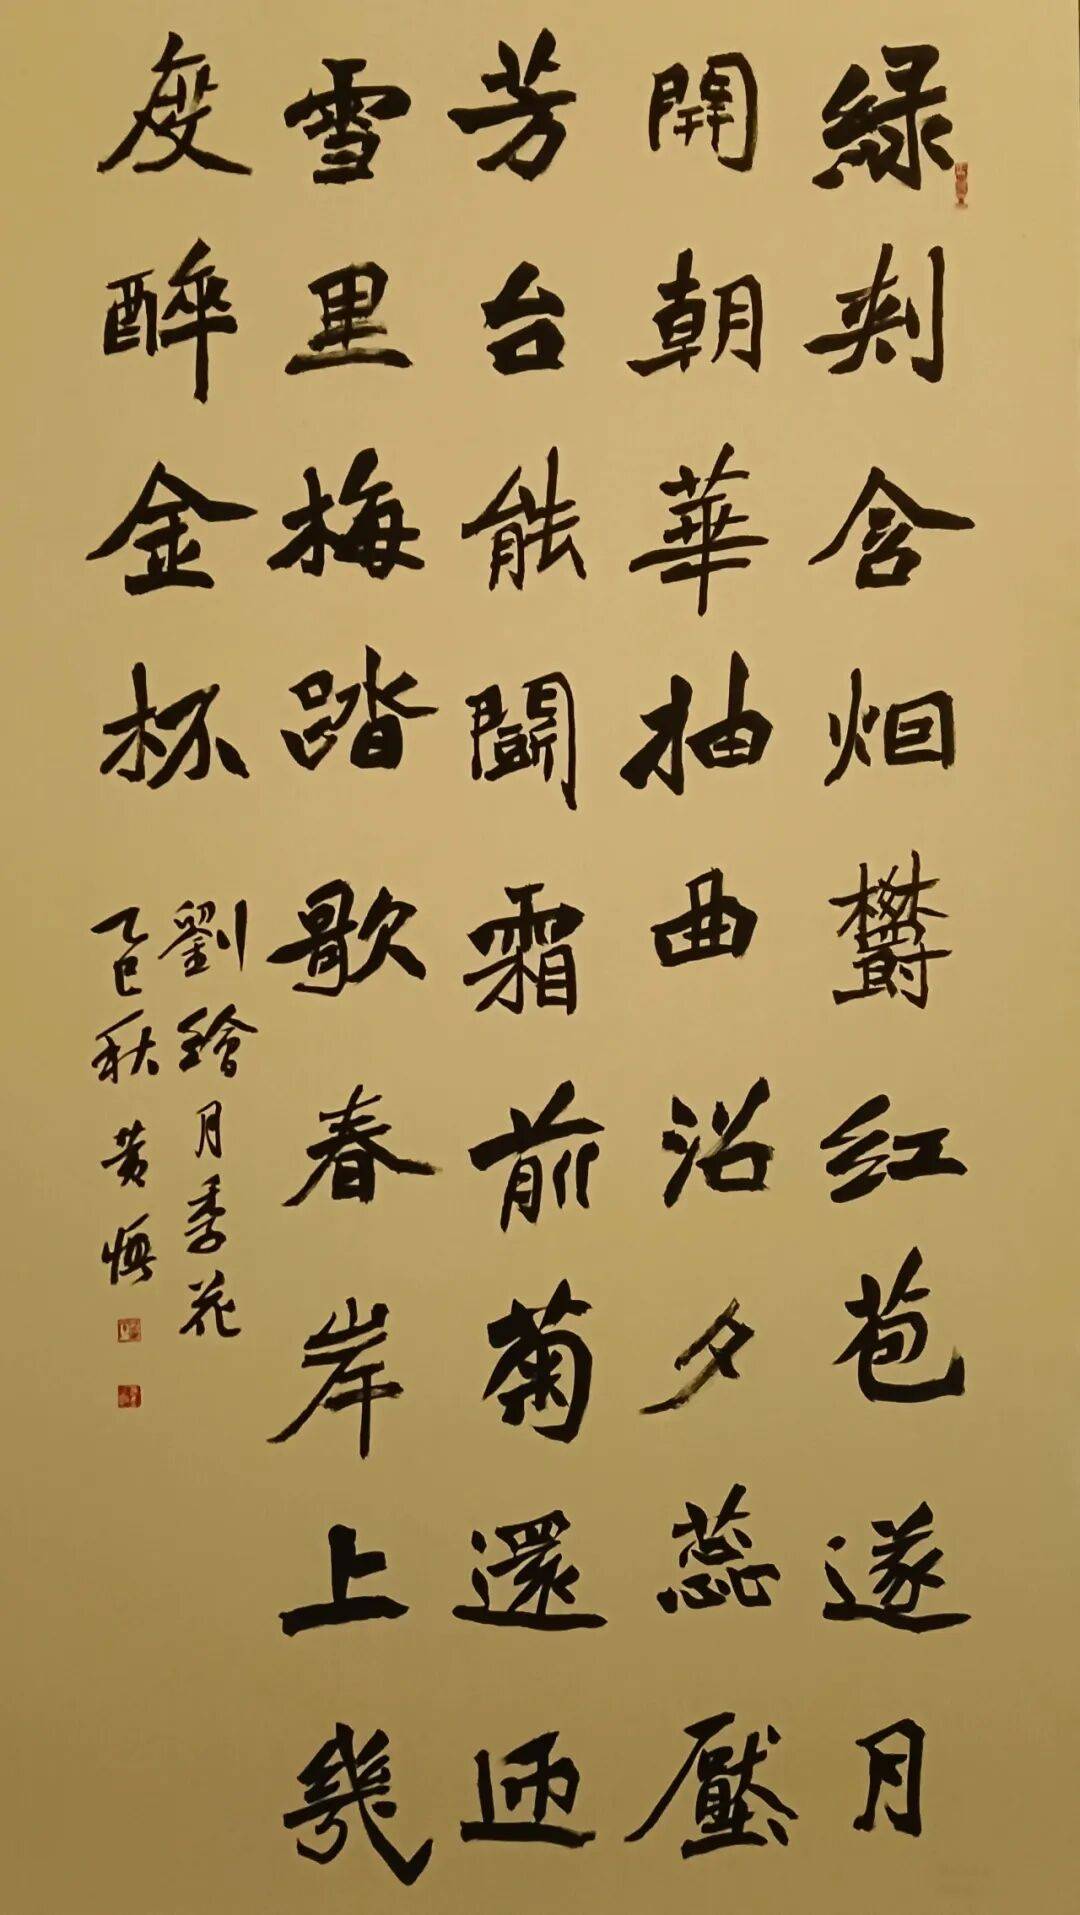 緑刺含烟欝红苞遂月
開朝華抽曲沼夕蕊壓
芳台能鬭霜前菊還迎
雪里梅踏歌春岸上幾
度醉金杯
劉繪月季花
乙巳秋黄